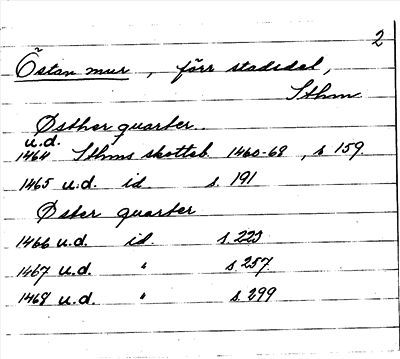 2
Östan mur, förr stadsdel,
Sthm
Østher quarter.
u.d.
1464 Sthms skotteb 1460-68, s 159.
1465 u.d. id s. 191
Øster quarter
1466 u.d. id. s. 225
1467 u.d. " s. 257.
1468 u.d. " s. 299